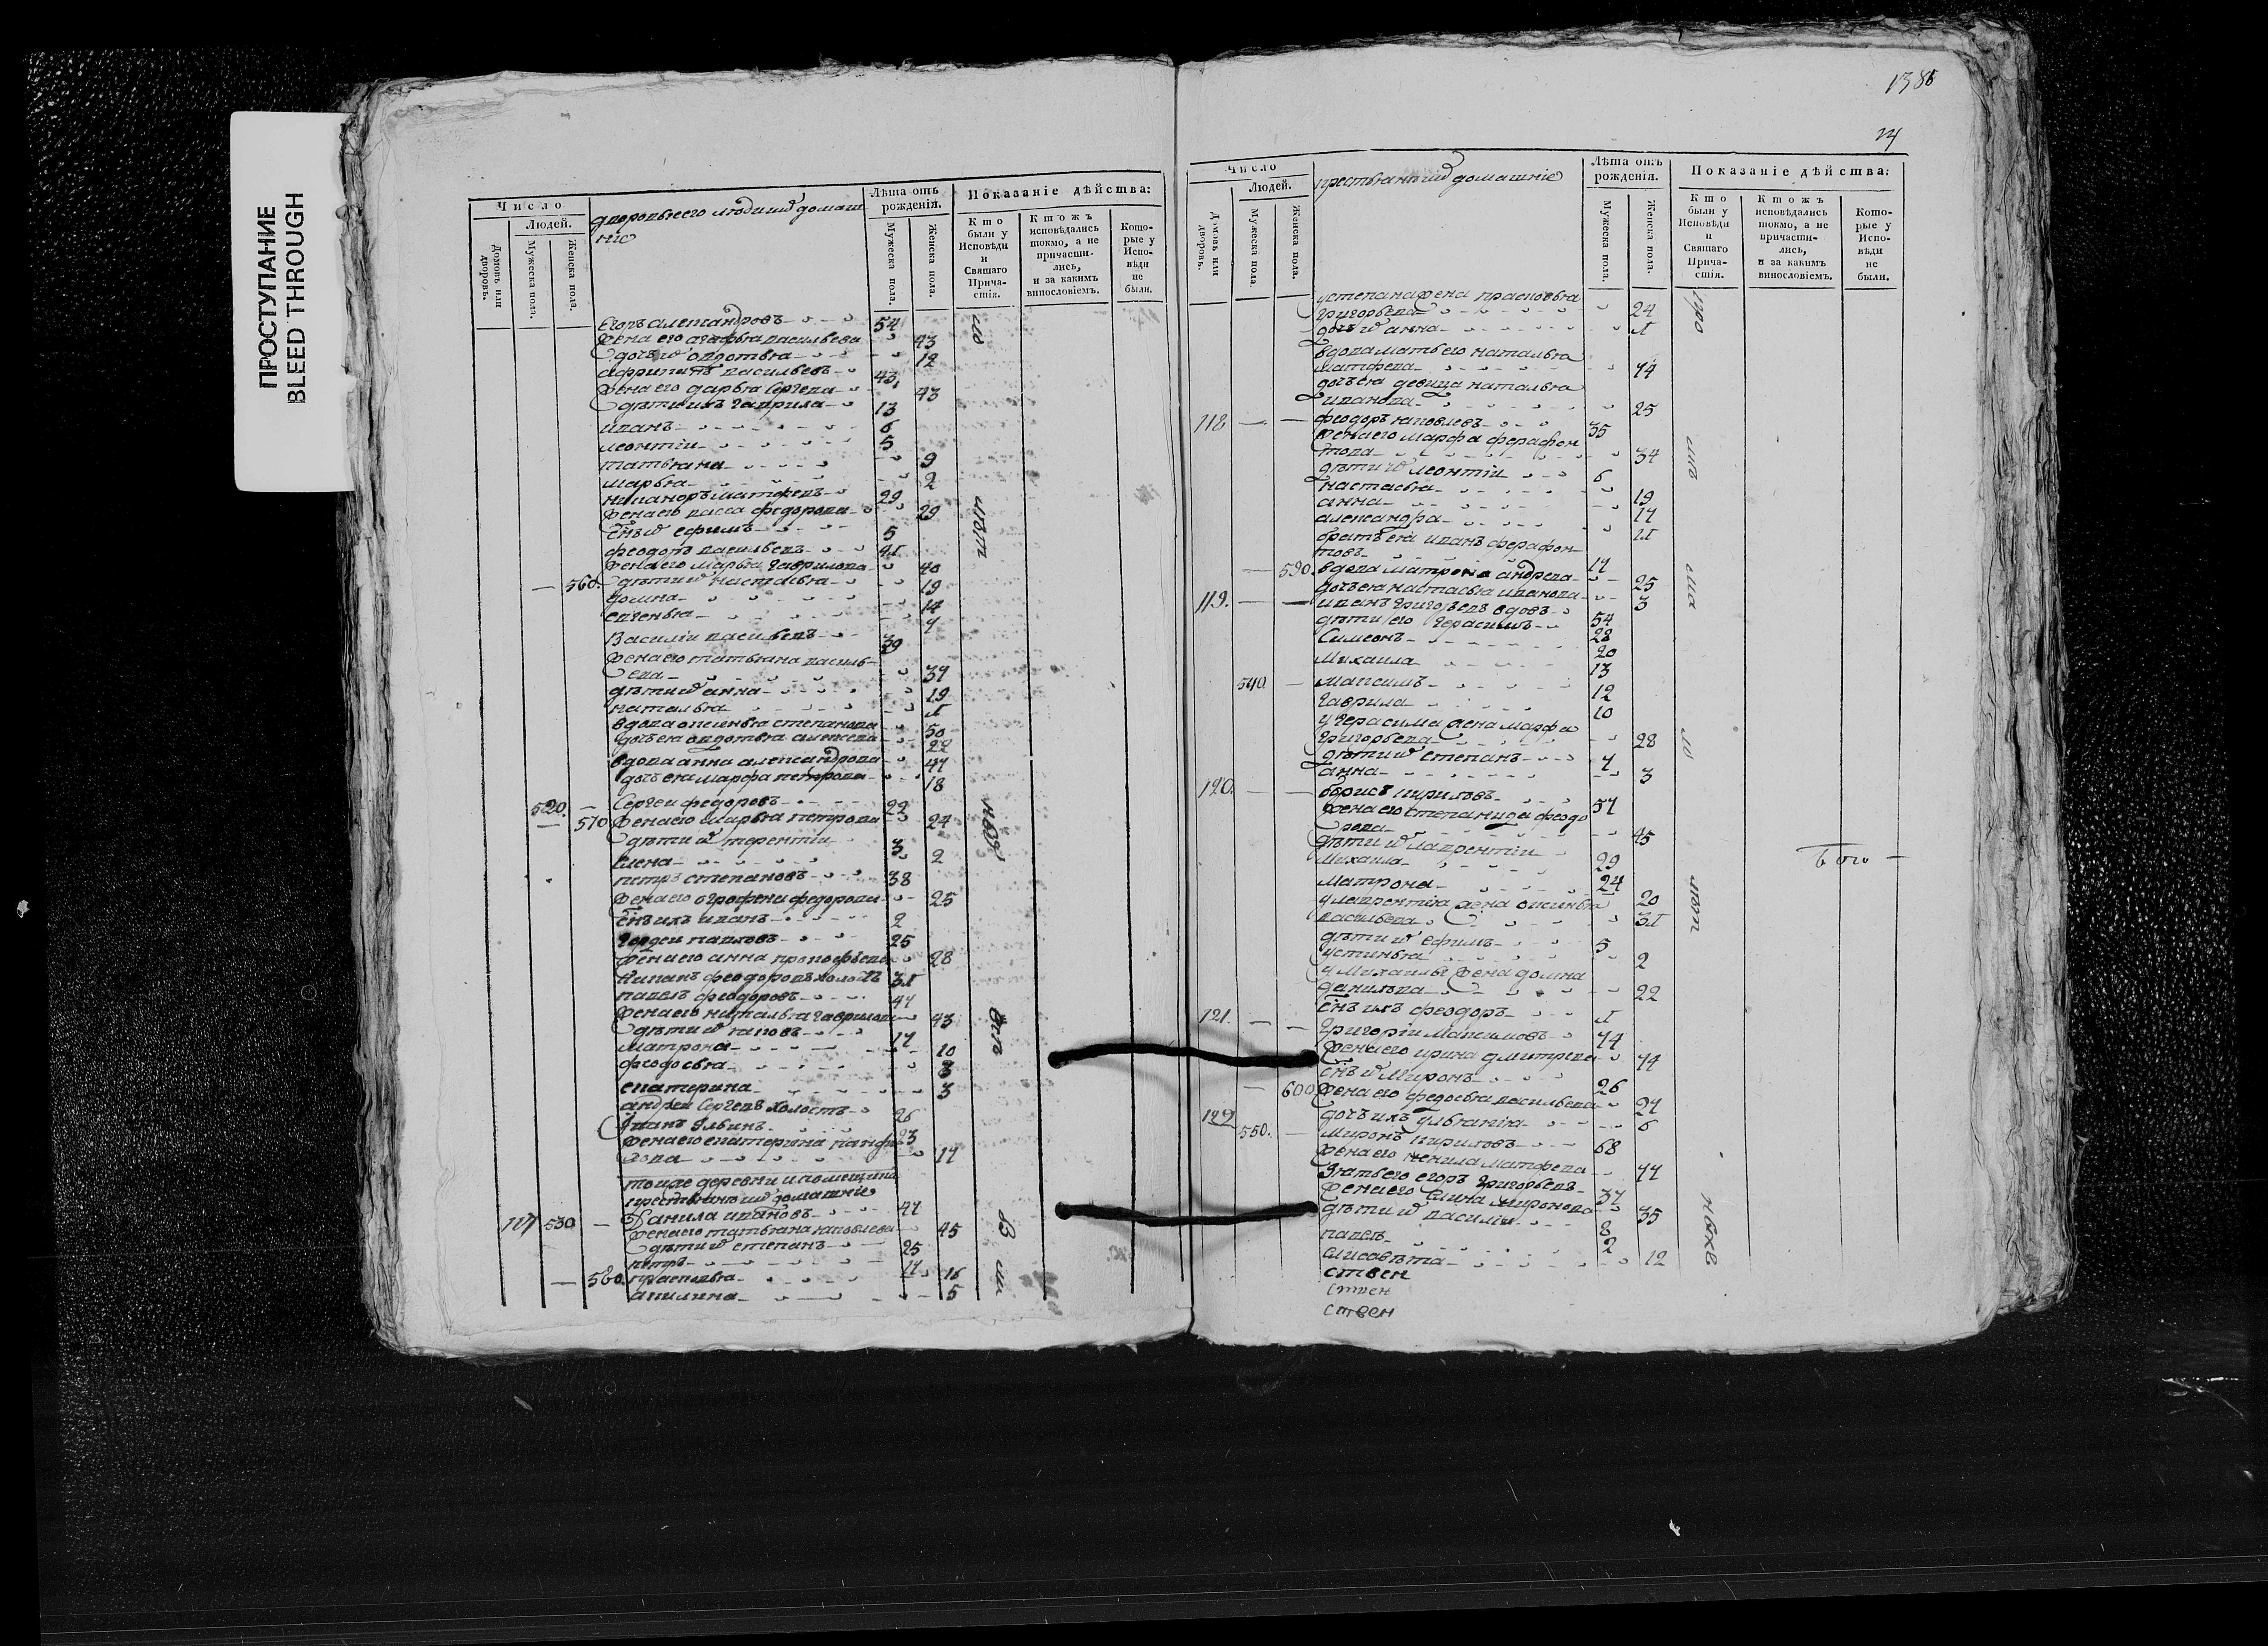 ПРОСТУПАНИЕ
BLEED THROUGH
Число
Людей.
Домовъ или дворовъ.
Мужеска пола.
Женска пола.
дворовые его люди и домаш
ние
Лѣта отъ рожденія.
Мужеска пола.
Женска пола.
Показаніе дѣйства:
Кто были у Исповѣди и Святаго Прича-стія.
Ктожъ исповѣдались токмо, а не причасти-лись, и за какимъ винословіемъ.
Кото-рые у Испо-вѣди не были.
Егоръ александровъ 54
жена его агафья васильева 43
дочь авдотья 12
васильевъ 43
жена его дарья сергева 43
дѣти ихъ гаврила 13
иванъ 6
леонтіи 5
татьяна 9
марья 2
никаноръ матфевъ 29
жена его васса федорова 29
снъ ефимъ 5
феодоръ васильевъ 41
жена его марья гаврилова 40
560. дѣти настасья 19
домна 14
евгенья 7
Василіи васильевъ 39
жена его татьяна василь
ева 37
дѣти анна 19
наталья 1
вдова аксинья степанова 50
дочь ея авдотья алексева 22
вдова анна александрова 47
дочь ея марфа петрова 18
520. Сергеи федоровъ 22
570 жена его марья петрова 24
дѣти терентіи 3
елена 2
петръ степановъ 38
жена его аграфена федорова 25
снъ ихъ иванъ 2
гордеи павловъ 25
жена его анна прокофьева 28
феодоровъ холостъ 31
павелъ феодоровъ 47
жена его наталья гаврилова 43
дѣти яковъ 17
матрона 10
феодосья 8
екатерина 3
андреи сергевъ холостъ 26
Иванъ ильинъ 23
жена его екатерина панфи
лова 17
тоиже деревни и помещика
крестьяне и домашніе
117 530 Данила ивановъ 47
жена его татьяна яковлева 45
дѣти степанъ 25
петръ 17
580. прасковья 16
акилина 5
1386
24
Число
Людей.
Домовъ или дворовъ.
Мужеска пола.
Женска пола.
крестьяне и домашніе
Лѣта отъ рожденія.
Мужеска пола.
Женска пола.
Показаніе дѣйства:
Кто были у Исповѣди и Святаго Прича-стія.
Ктожъ исповѣдались токмо, а не причасти-лись, и за какимъ винословіемъ.
Кото-рые у Испо-вѣди не были.
у степана жена прасковья
григорьева 24
дочь анна 1
вдова мать его наталья
матфева 74
дочь ея девица наталья
иванова 25
118 феодоръ яковлевъ 35
жена его марфа ферафон
това 34
дѣти леонтіи 6
настасья 19
анна 17
александра 11
братъ ея иванъ ферафон
товъ 17
590. вдова матрона андрева 25
дочь ея настасья иванова 3
119. иванъ григорьевъ вдовъ 54
дѣти его герасимъ 28
Симеонъ 20
Михаила 13
540. Максимъ 12
гаврила 10
у герасима жена марфа
григорьева 28
дѣти степанъ 7
анна 3
120. борисъ кириловъ 57
жена его степанида феодо
рова 45
дѣти лаврентіи 29
Михаила 24
Матрона 20
у лаврентія жена аксинья
васильева 31
дѣти ефимъ 5
устинья 2
у Михаилы жена домна
данилова 22
снъ ихъ феодоръ 1
121. Григоріи Максимовъ 74
жена его ирина дмитрева 74
снъ Миронъ 26
600 жена его федосья васильева 27
дочь ихъ ульянія 6
122 550. Миронъ кириловъ 68
жена его ненила матфева 77
Зять его егоръ григорьевъ 37
жена его миронова 35
дѣти василіи 8
павелъ 2
елисавѣта 12
ствен
ствен
ствен